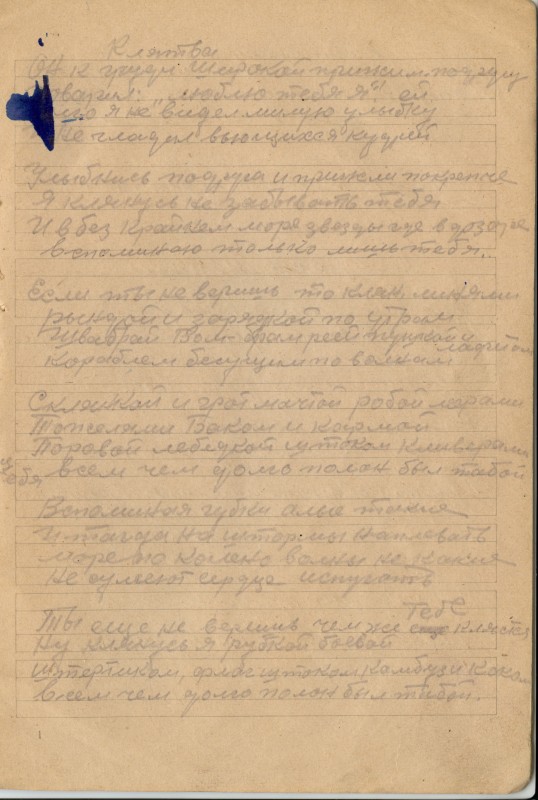 Клятва
Он к груди широкой прижим. подругу
говарил: "люблю тебя я" ей
я не видел милую улыбку
Не гладил вьющихся кудрей
Улыбнись подруга и прижми покрепче
Я клянусь не забывать тебя
И в без крайнем море звезды где
вспоминаю только лишь тебя..
Если ты не веришь то клян.
рындой и зарядкой по утрам
Шваброй Бом-Брам реей пушкой и
кораблем бегущим по волнам
Склянкой и грот мачтой робой марами
Баком и кармой
Поровой лебедкой штоком Кливерами
всем чем долго полон был табой
тебя
Вспоминая губки алые такие
И тагда на штормы наплевать
море по колено волны не какие
Не сумеют сердце испугать
Ты еще не веришь чем же тебе клясться
Ну клянусь я рубкой боевой
Штертиком, флаг штоком Камбузи Коком
всем чем долго полон был табой.